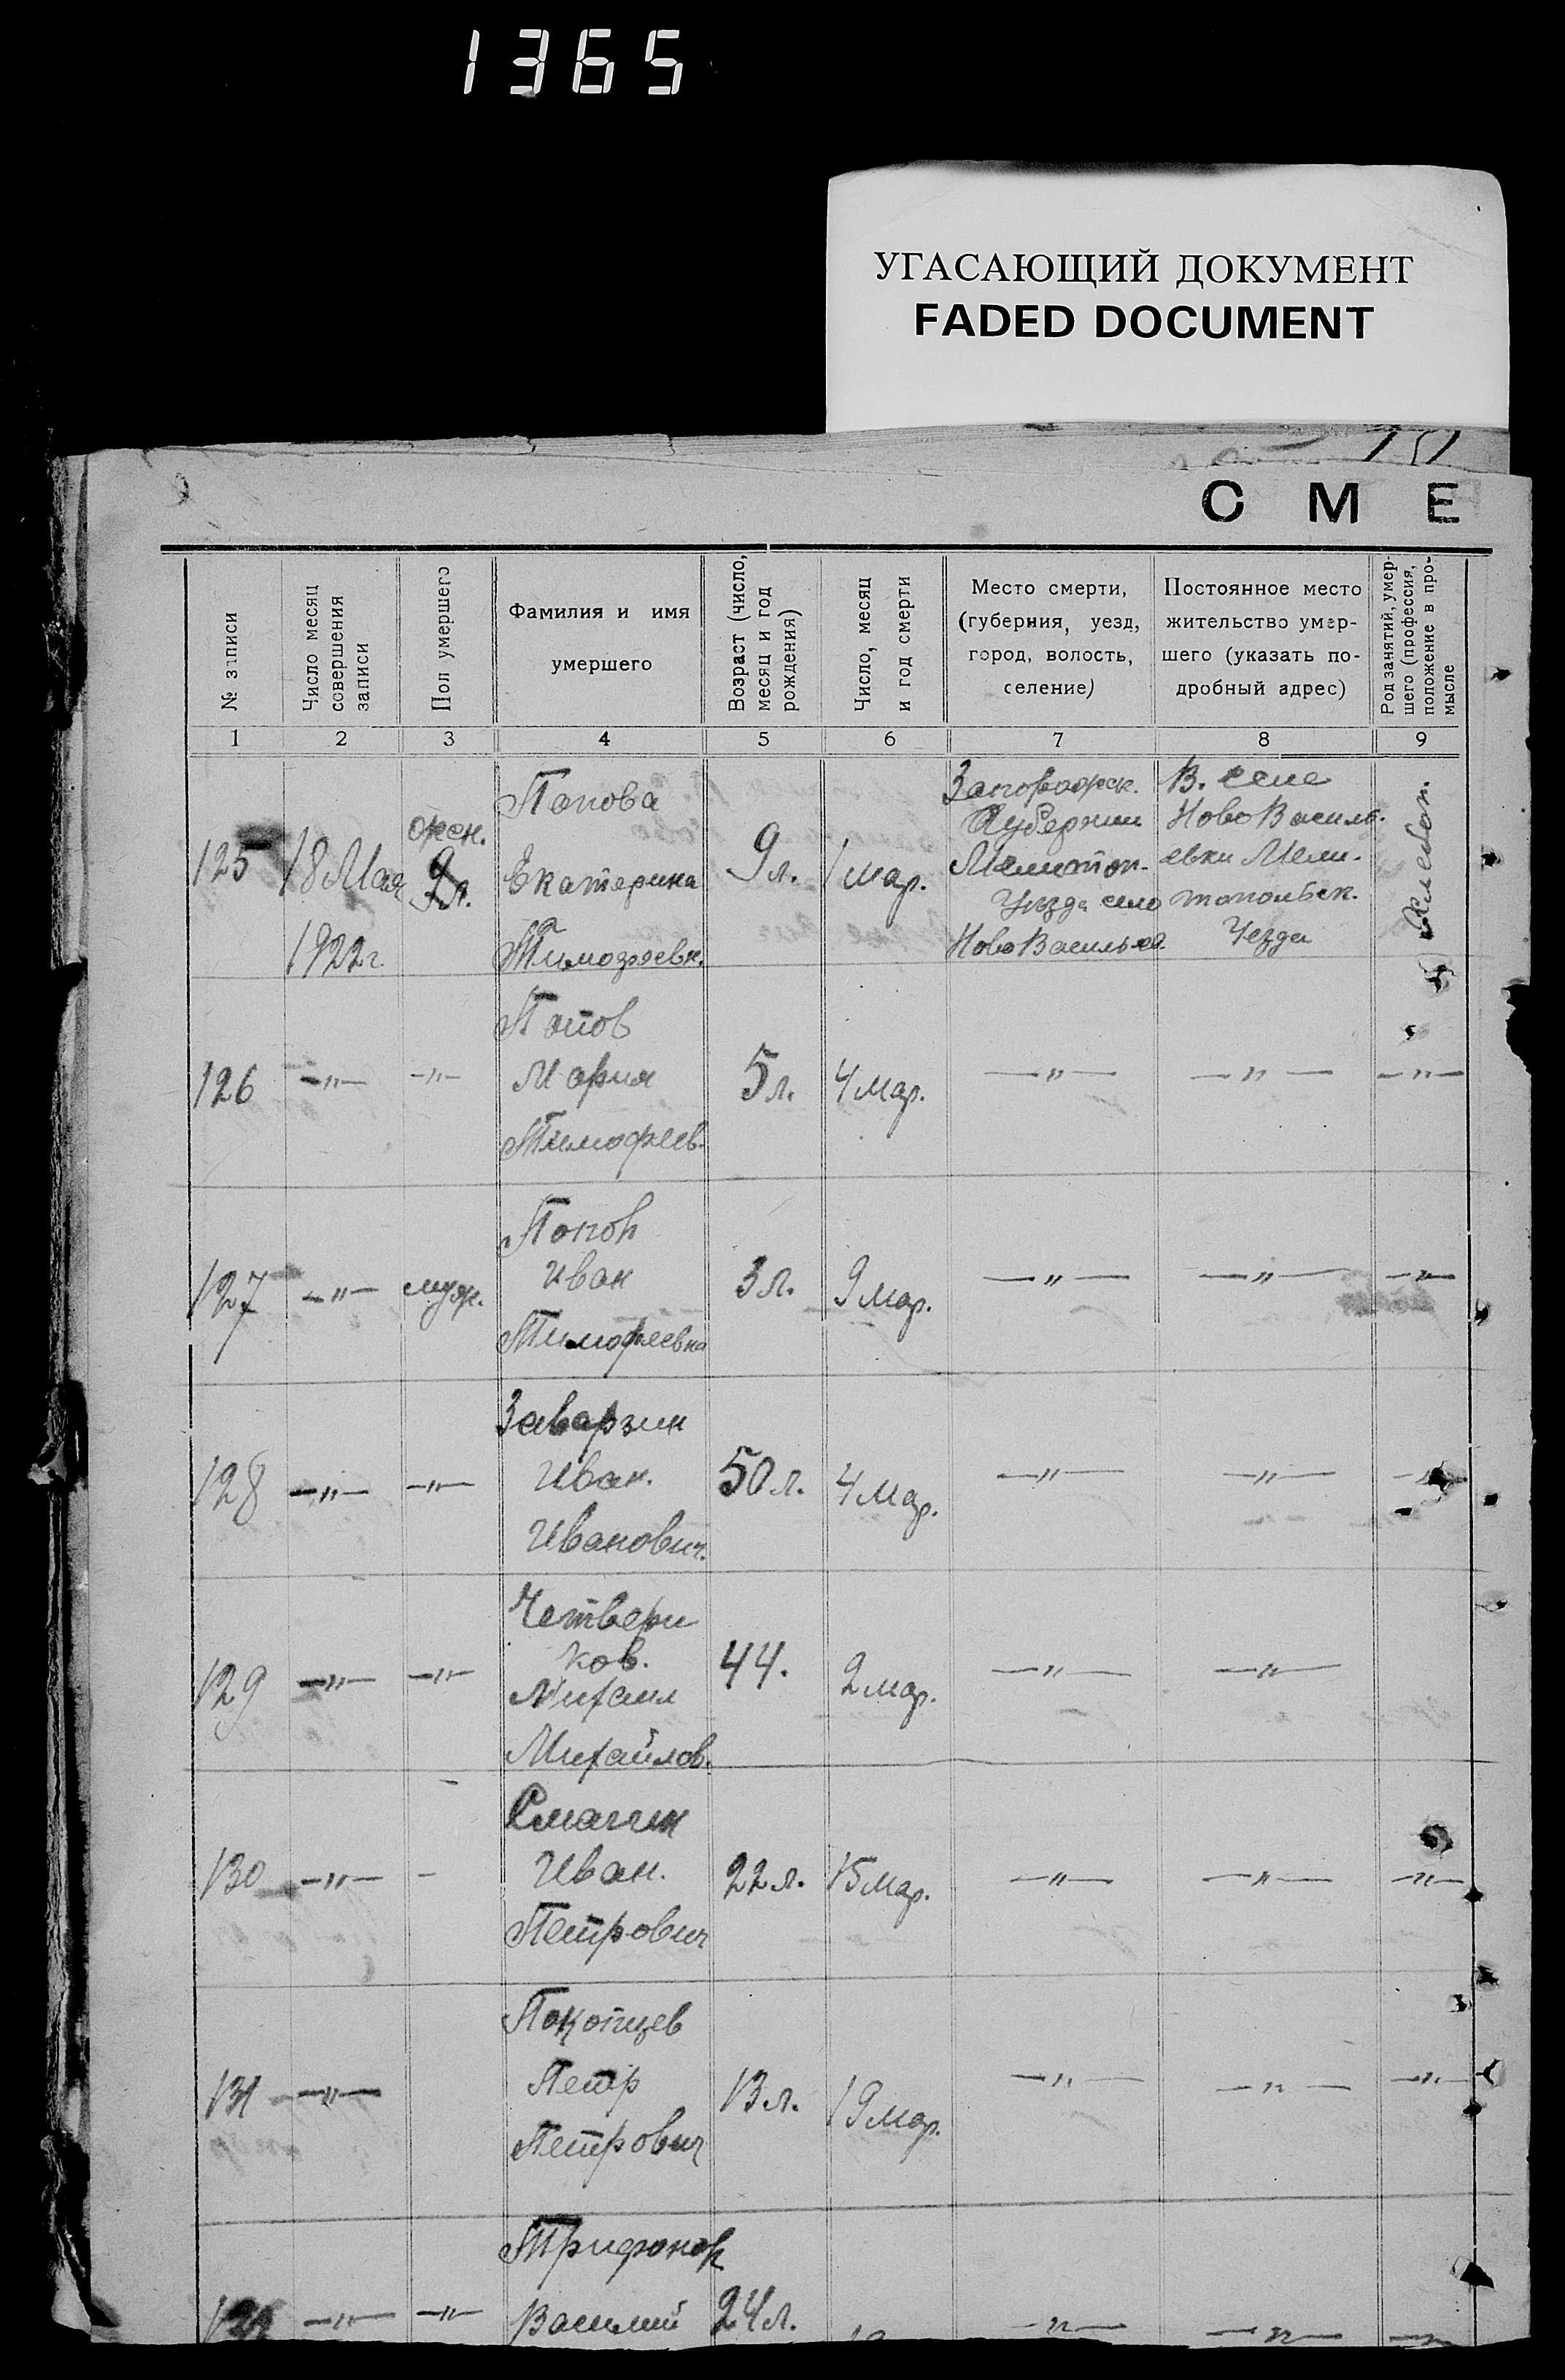 1365
УГАСАЮЩИЙ ДОКУМЕНТ
FADED DOCUMENT
С М Е
№ записи
Число месяц совершения записи
Пол умершего
Фамилия и имя умершего
Возраст (число, месяц и год рождения)
Число, месяц и год смерти
Место смерти, (губерния, уезд, город, волость, селение)
Постоянное место жительство умершего (указать подробный адрес)
Род занятий, умершего (профессия, положение в промысле
1 2 3 4 5 6 7 8 9
125 18 Мая 1922 г
жен.
Попова
Екатерина
Тимофеевн.
9 л. 1 мар.
Запорожск.
Губернии
Мелитоп.
Уезда село
Ново Васильев.
В. селе
Ново Василь-
евки Мели-
топольск.
Уезда
Хлебоп.
126 —〃— —〃—
Попов
Мария
Тимофеев.
5 л. 4 мар. —〃— —〃— —〃—
127 —〃— муж.
Попов
Иван
Тимофеевна
3 л. 9 мар. —〃— —〃— —〃—
128 —〃— —〃—
Заварзин
Иван.
Иванович.
50 л. 4 мар. —〃— —〃— —〃—
129 —〃— —〃—
Четвери
ков.
Михаил
Михайлов.
44. 2 мар. —〃— —〃—
130 —〃— -
Иван.
Петрович
22 л. 15 мар. —〃— —〃— —〃—
131 —〃—
Петр
Петрович
13 л. 19 мар. —〃— —〃— —〃—
132 —〃— —〃—
Трифонов
Василий
24 л. —〃— —〃— —〃—